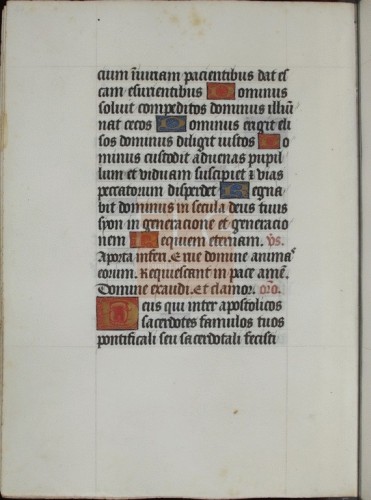 cium iniuriam pacientibus dat es
cam esurientibus Dominus
soluit compeditos dominus illum
nat cecos Dominus erigit eli
sos dominus diligit iustos Do
minus custodit aduenas pupil
lum et viduam suscipiet et vias
peccatorum disperdet Regna
bit dominus in secula deus tuus
syon in generacione et generacio
nem Requiem eternam. vs.
Aporta inferi. Erue domine animas
eorum. Requiescant in pace amen.
Domine exaudi. Et clamor. oro.
Deus qui inter apostolicos
sacerdotes famulos tuos
pontificali seu sacerdotali fecisti